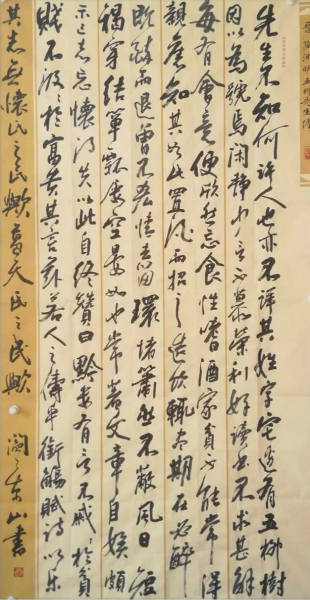 晋 陶渊明五柳先生传
先生不知何許人也亦不詳其姓字宅邊有五柳樹
因以為號焉闲静少言不慕榮利好讀書不求甚解
每有會意便欣然忘食性嗜酒家貧不能常得
親舊知其如此置酒而招之造飲輒盡期在必醉
既醉而退曾不吝情去留環堵蕭然不蔽風日短
褐穿結簞瓢屢空晏如也常著文章自娛頗
示己志忘懷得失以此自終贊曰黔婁有言不戚戚於貧
賤不汲汲於富貴其言茲若人之儔乎銜觴賦詩以樂
其志無懷氏之民歟葛天氏之民歟 東山書